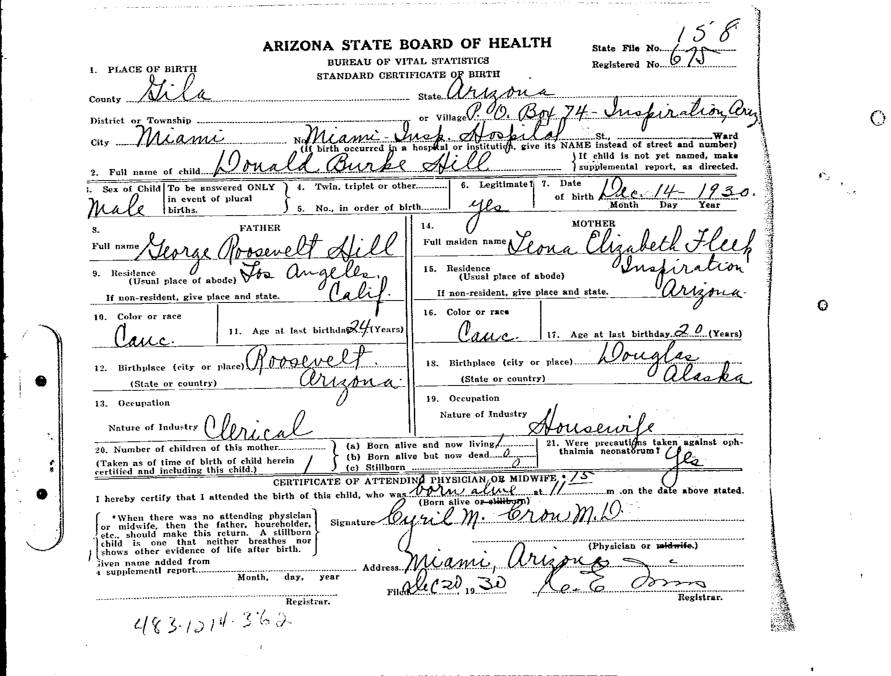 158
ARIZONA STATE BOARD OF HEALTH
State File No.
BUREAU OF VITAL STATISTICS
Registered No. 675
1. PLACE OF BIRTH
STANDARD CERTIFICATE OF BIRTH
County Gila State Arizona
District or Township or Village P.O. Box 74 - Inspiration, Ariz
City Miami No. Miami - Insp. Hospital St., Ward
(If birth occurred in a hospital or institution, give its NAME instead of street and number)
2. Full name of child Donald Burke Hill } If child is not yet named, make supplemental report, as directed.
3. Sex of Child Male
To be answered ONLY in event of plural births.
4. Twin, triplet or other
5. No., in order of birth
6. Legitimate? yes
7. Date of birth Dec. 14 - 1930.
Month Day Year
8. FATHER
Full name George Roosevelt Hill
9. Residence (Usual place of abode) Los Angeles,
If non-resident, give place and state. Calif.
10. Color or race Cauc.
11. Age at last birthday 24 (Years)
12. Birthplace (city or place) Roosevelt
(State or country) Arizona.
13. Occupation
Nature of Industry Clerical
14. MOTHER
Full maiden name Leona Elizabeth Fleek
15. Residence (Usual place of abode) Inspiration
If non-resident, give place and state. Arizona.
16. Color or race Cauc.
17. Age at last birthday 20 (Years)
18. Birthplace (city or place) Douglas
(State or country) Alaska
19. Occupation
Nature of Industry Housewife
20. Number of children of this mother
(Taken as of time of birth of child herein certified and including this child.) 1
(a) Born alive and now living 1
(b) Born alive but now dead 0
(c) Stillborn 0
21. Were precautions taken against ophthalmia neonatorum? Yes
CERTIFICATE OF ATTENDING PHYSICIAN OR MIDWIFE *
I hereby certify that I attended the birth of this child, who was born alive at 11:15 m. on the date above stated.
(Born alive or stillborn)
*When there was no attending physician
or midwife, then the father, householder,
etc., should make this return. A stillborn
child is one that neither breathes nor
shows other evidence of life after birth.
Signature Cyril M. Cron M.D.
(Physician or midwife.)
Given name added from
a supplemental report
Month, day, year
Address Miami, Arizona
Filed Dec 20 1930
Registrar.
Registrar.
483-1214-362